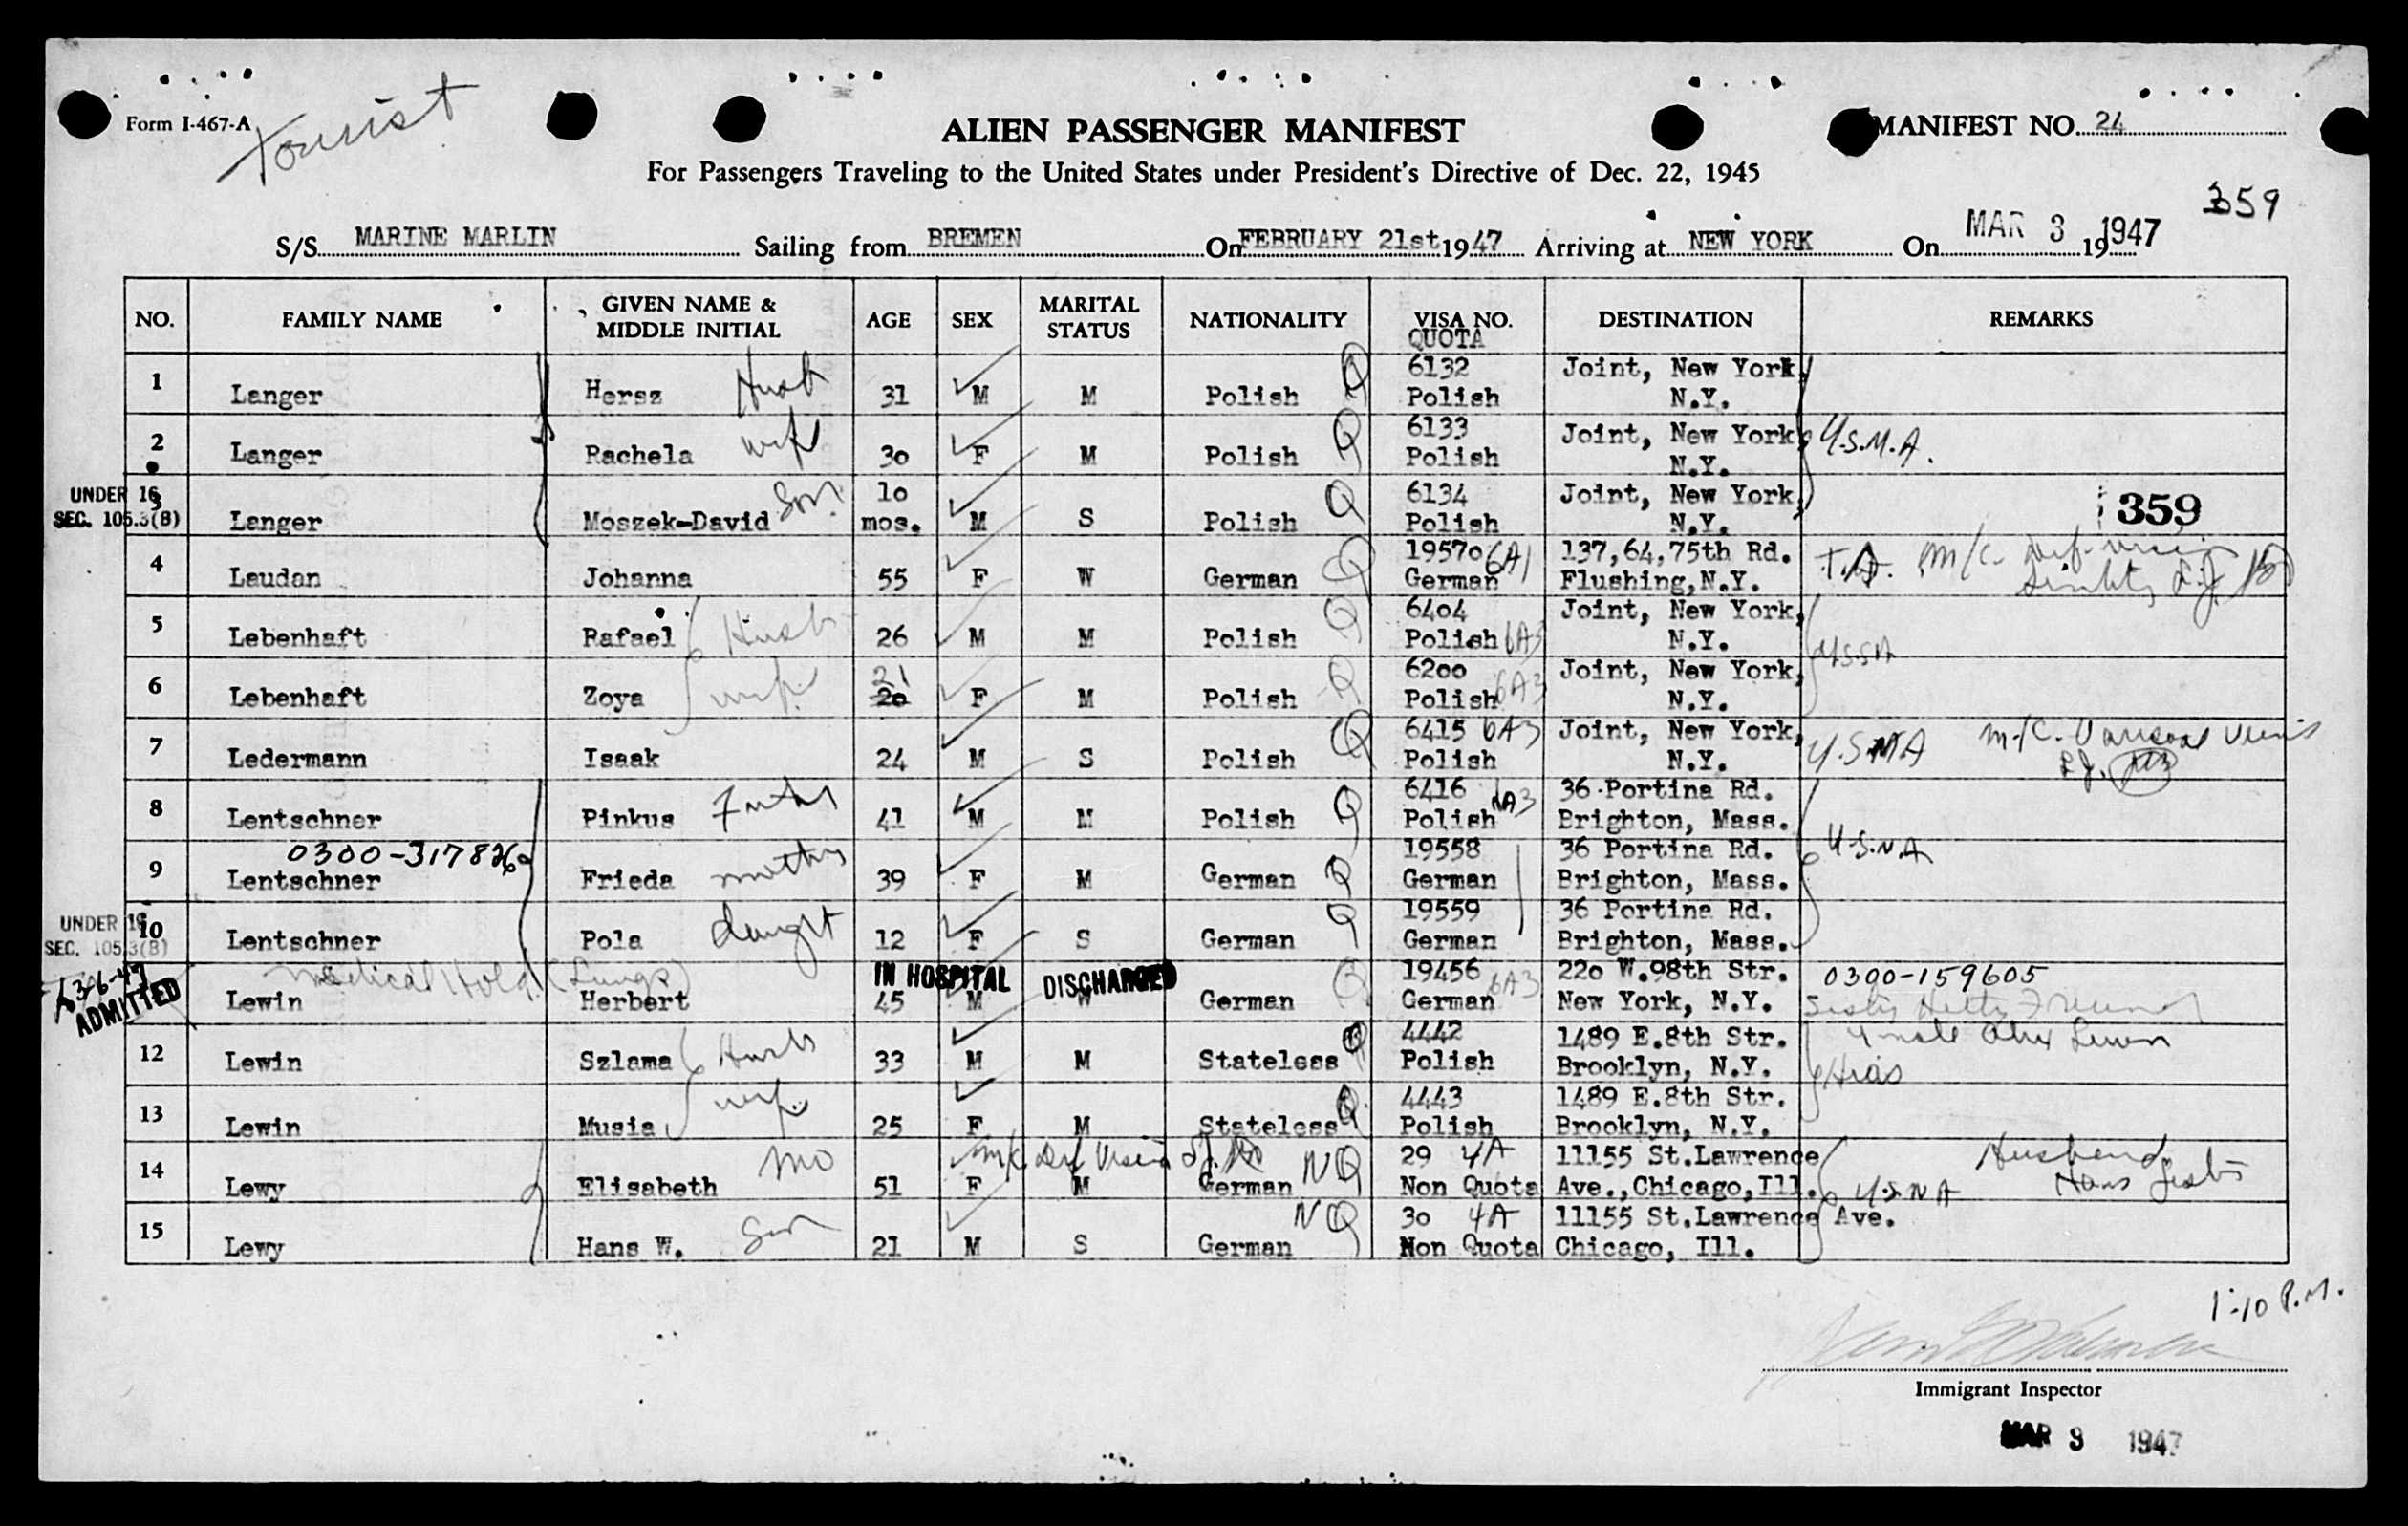 Form I-467-A
Tourist
ALIEN PASSENGER MANIFEST
MANIFEST NO. 24
For Passengers Traveling to the United States under President's Directive of Dec. 22, 1945
359
S/S MARINE MARLIN Sailing from BREMEN On FEBRUARY 21st 1947 Arriving at NEW YORK On MAR 3 1947 19
NO. FAMILY NAME GIVEN NAME & MIDDLE INITIAL AGE SEX MARITAL STATUS NATIONALITY VISA NO. QUOTA DESTINATION REMARKS
1 Langer Hersz Husb 31 M M Polish Q 6132 Polish Joint, New York, N.Y.
2 Langer Rachela wife 30 F M Polish Q 6133 Polish Joint, New York, N.Y. U.S.N.A.
UNDER 16 SEC. 105.3(B)
3 Langer Moszek-David Son 10 mos. M S Polish Q 6134 Polish Joint, New York, N.Y. 359
4 Laudan Johanna 55 F W German Q 19570 6A1 German 137,64,75th Rd. Flushing,N.Y. M/C.
5 Lebenhaft Rafael Husb 26 M M Polish Q 6404 Polish 6A3 Joint, New York, N.Y.
6 Lebenhaft Zoya wife 20 21 F M Polish Q 6200 Polish 6A3 Joint, New York, N.Y.
7 Ledermann Isaak 24 M S Polish Q 6415 6A3 Polish Joint, New York, N.Y. U.S.N.A M/C. Varicose Veins
8 Lentschner Pinkus Father 41 M M Polish Q 6416 6A3 Polish 36 Portina Rd. Brighton, Mass.
0300-317826
9 Lentschner Frieda mother 39 F M German Q 19558 German 36 Portina Rd. Brighton, Mass. U.S.N.A
UNDER 16 SEC. 105.3(B)
10 Lentschner Pola daught 12 F S German Q 19559 German 36 Portina Rd. Brighton, Mass.
3-6-47 ADMITTED
Medical Hold (Lungs)
IN HOSPITAL DISCHARGED
Lewin Herbert 45 M W German Q 19456 6A3 German 220 W.98th Str. New York, N.Y. 0300-159605
12 Lewin Szlama Husb 33 M M Stateless Q 4442 Polish 1489 E.8th Str. Brooklyn, N.Y. Uncle Alex Lewin Hias
13 Lewin Musia wife 25 F M Stateless Q 4443 Polish 1489 E.8th Str. Brooklyn, N.Y.
14 Lewy Elisabeth Mo 51 F M German NQ 29 4A Non Quota 11155 St.Lawrence Ave.,Chicago,Ill. U.S.N.A Husband, Hans
15 Lewy Hans W. Son 21 M S German NQ 30 4A Non Quota 11155 St.Lawrence Ave. Chicago, Ill.
1:10 P.M.
Immigrant Inspector
MAR 3 1947